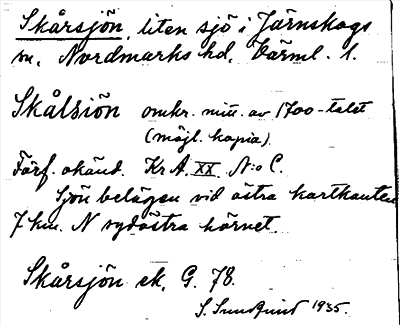 Skårsjön, liten sjö i Järnskogs
sn, Nordmarks hd, Värml. l.
Skålsiön omkr. mitt. av 1700-talet
(möjl. kopia)
Förf. okänd. Kr A. XX. N:o C.
Sjön belägen vid östra kartkanten
7 km. N sydöstra hörnet
Skårsjön ek. G. 78.
S. Sundquist 1935.